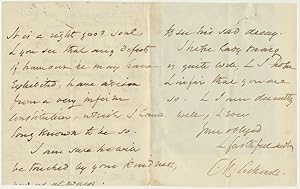 It is a right good soul
& you see that any defects
of humour he may have
exhibited, have arisen
from a very infirm
constitution which I have
long known to be so.
I am sure he will
be touched by your kindness,
to see his sad decay.
I hope Lady
is quite well &
infer that you are
so. I am decently
well, & ever
your obliged
& faithful